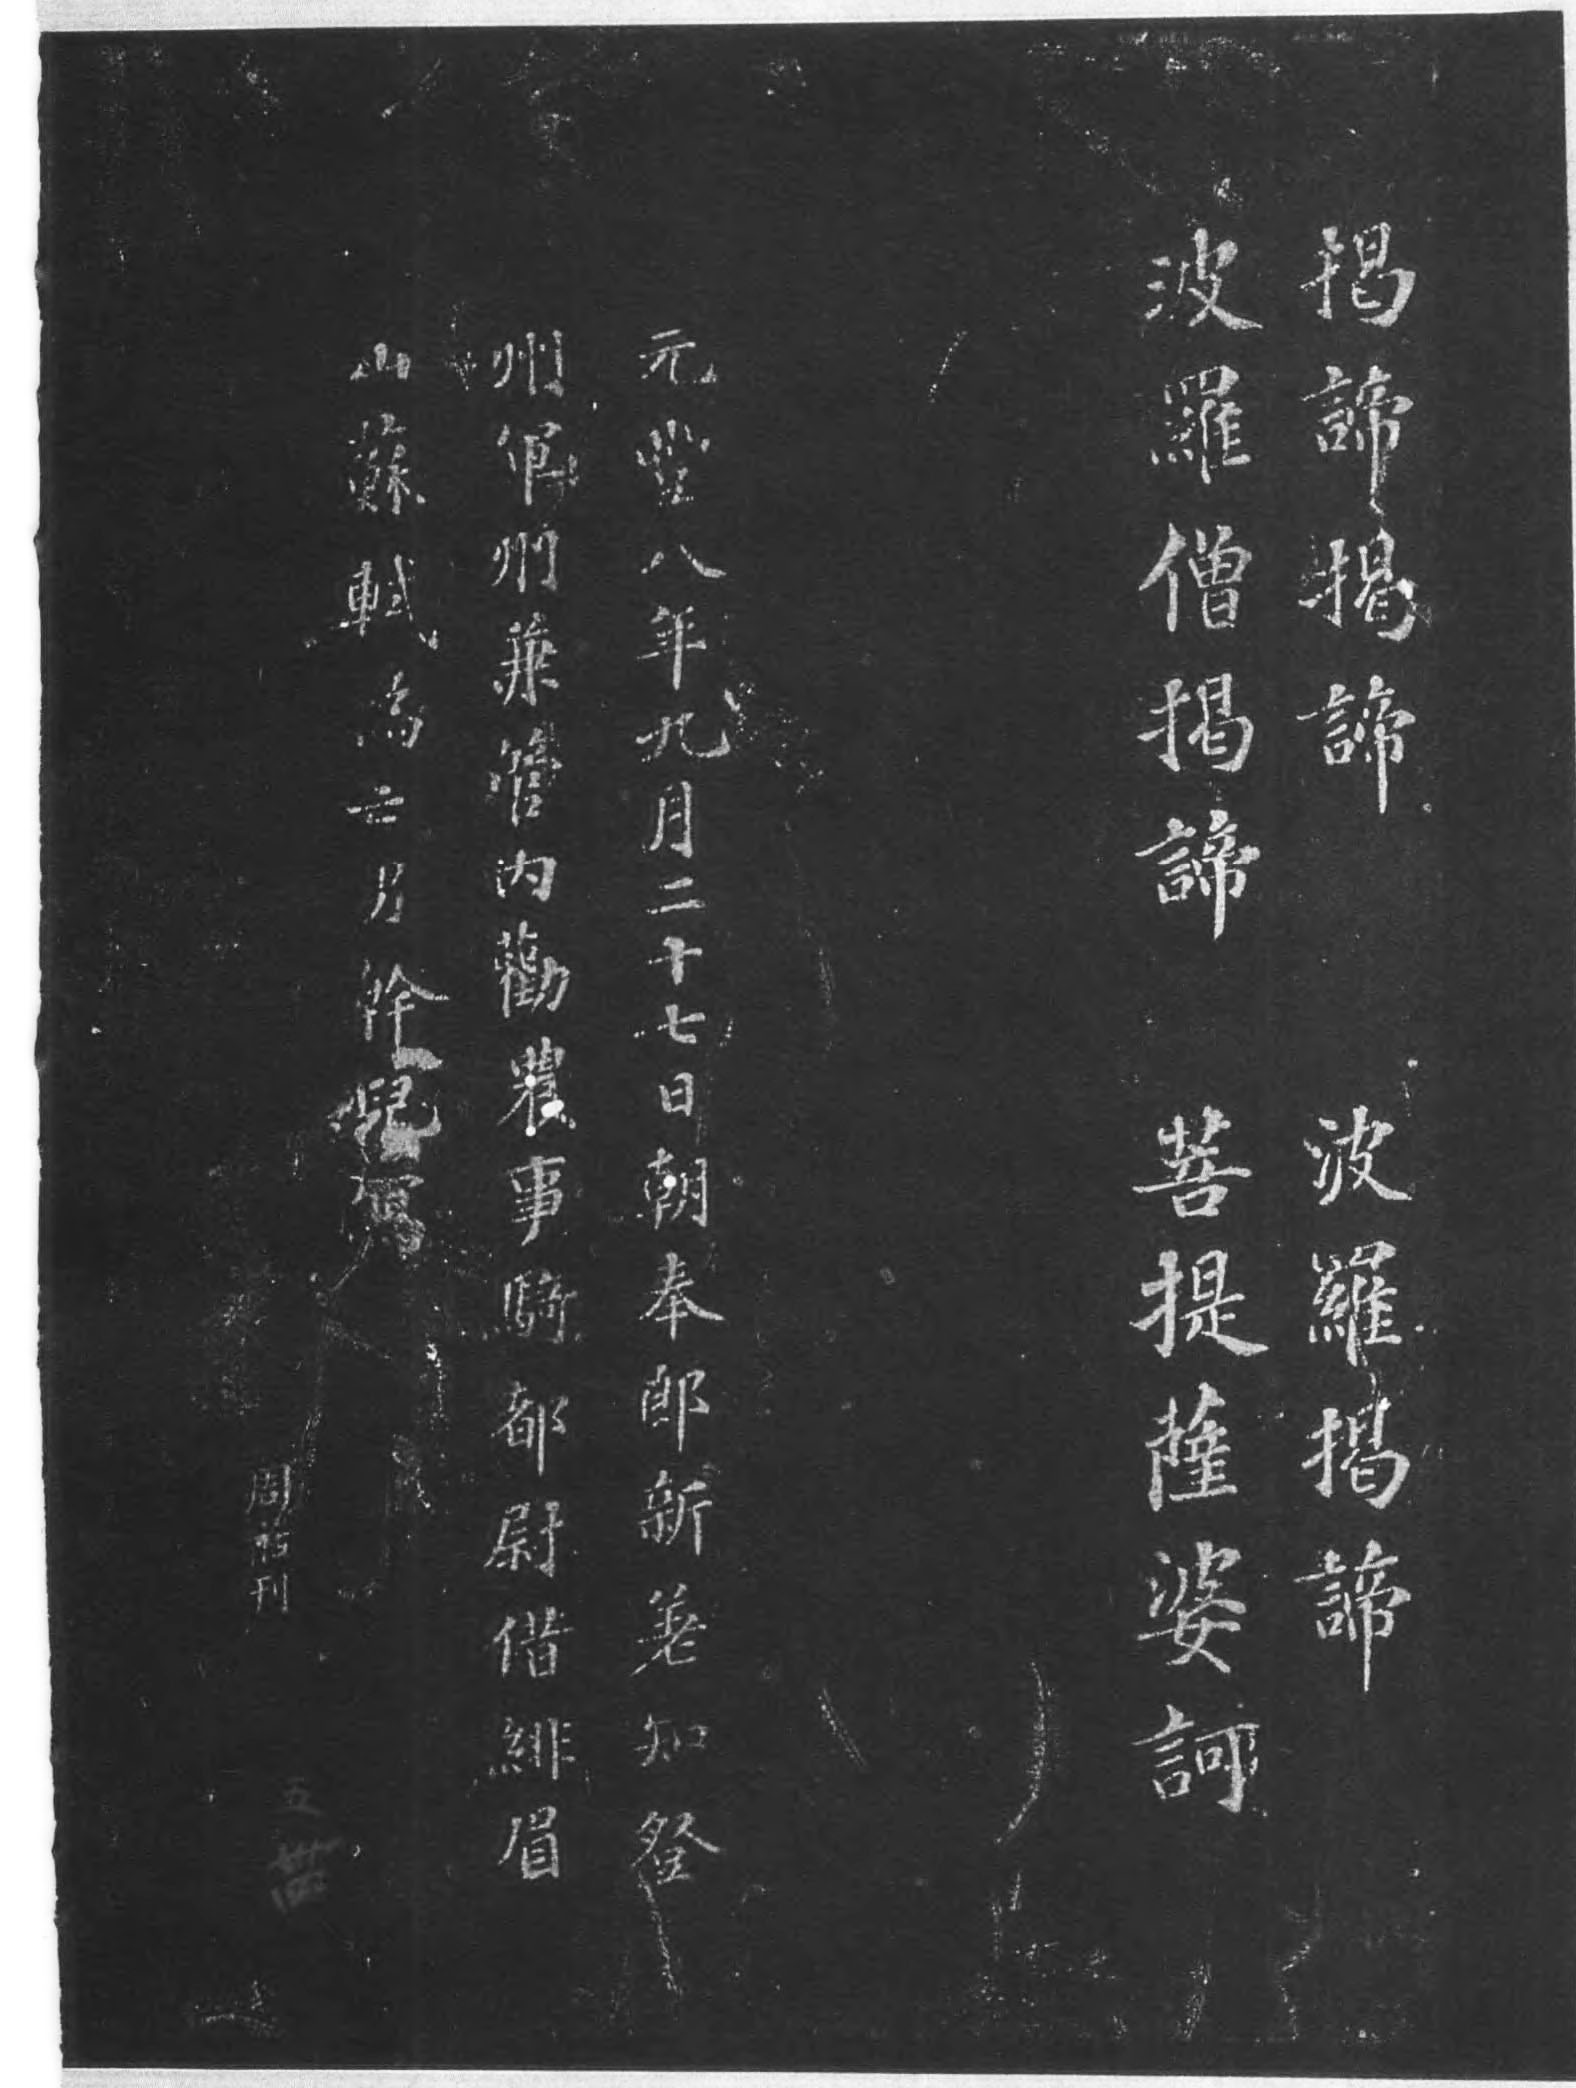 揭諦揭諦 波羅揭諦
波羅僧揭諦 菩提薩婆訶
元豐八年九月二十七日朝奉郎新差知登
州軍州兼管內勸農事騎都尉借緋眉
山蘇軾為亡男幹兒寫
周 刊
五